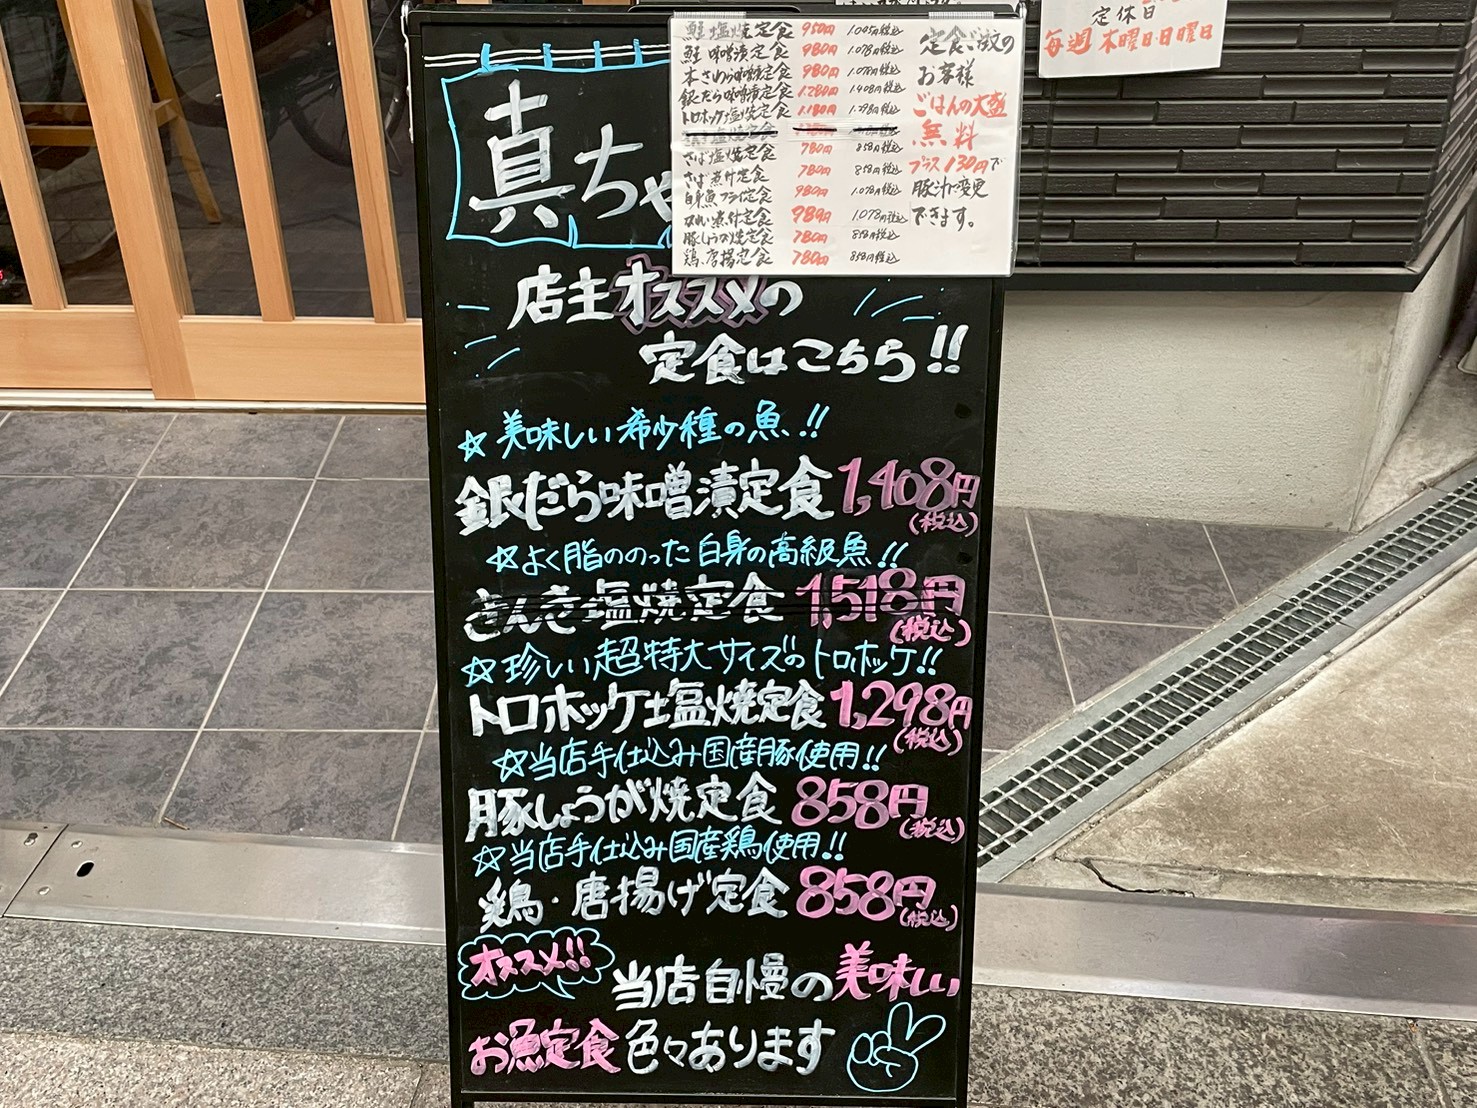 定休日
毎週 木曜日・日曜日
鮭塩焼定食 950円 1.045円税込
鮭味噌漬定食 980円 1.078円税込
本さわら味噌漬定食 980円 1.078円税込
銀だら味噌漬定食 1.280円 1.408円税込
トロホッケ塩焼定食 1.180円 1.298円税込
さば塩焼定食 780円 858円税込
さば煮付定食 780円 858円税込
白身魚フライ定食 980円 1.078円税込
煮付定食 980円 1.078円税込
豚しょうが焼定食 780円 858円税込
鶏、唐揚定食 780円 858円税込
定食ご注文の
お客様
ごはんの大盛
無料
プラス130円で
豚汁に変更
できます。
真ちゃ
店主オススメの
定食はこちら!!
☆美味しい希少種の魚!!
銀だら味噌漬定食 1,408円
(税込)
☆よく脂ののった白身の高級魚!!
きんき塩焼定食 1,518円
(税込)
☆珍しい超特大サイズのトロホッケ!!
トロホッケ塩焼定食 1,298円
(税込)
☆当店手仕込み国産豚使用!!
豚しょうが焼定食 858円
(税込)
☆当店手仕込み国産鶏使用!!
鶏・唐揚げ定食 858円
(税込)
オススメ!!
当店自慢の美味しい
お魚定食色々あります